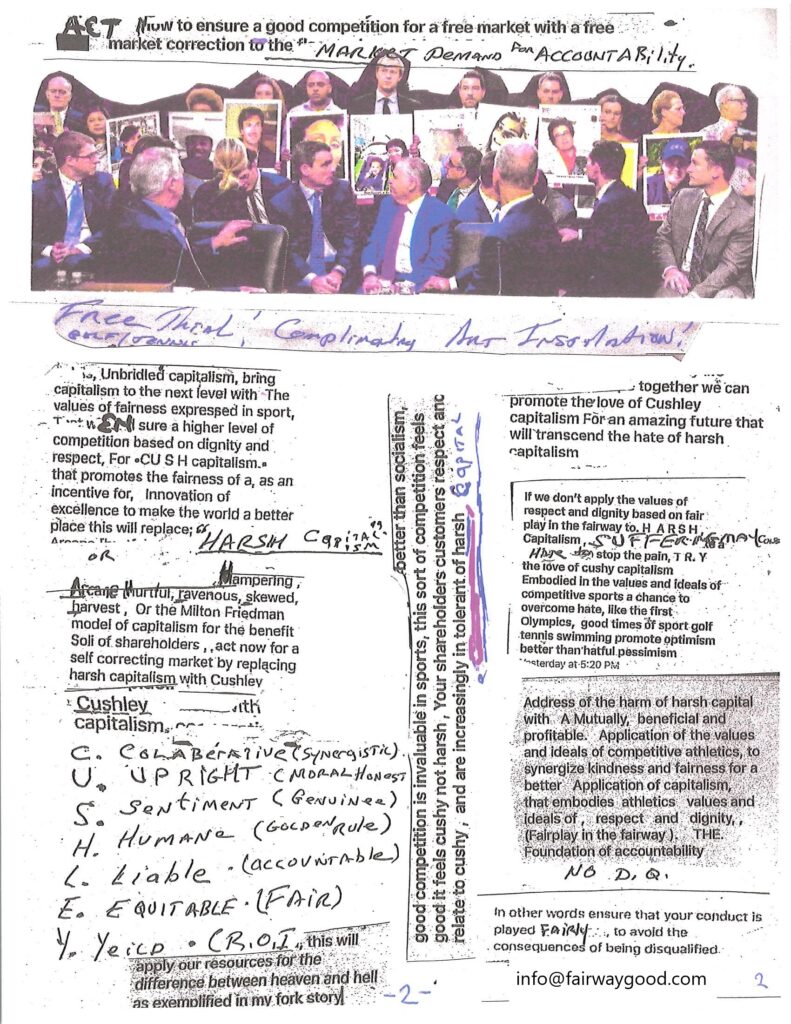 ACT Now to ensure a good competition for a free market with a free
market correction to the MARKET DEMAND FOR ACCOUNTABILITY.
Free Trial! Complimatry Art Instolation!
GOLF/TENNIS
Unbridled capitalism, bring
capitalism to the next level with The
values of fairness expressed in sport,
EN sure a higher level of
competition based on dignity and
respect, For •CU S H capitalism.•
that promotes the fairness of a, as an
incentive for, Innovation of
excellence to make the world a better
place this will replace; or
HARSH CAPITALISM
OR
Hampering,
Arcane Hurtful, ravenous, skewed,
harvest, Or the Milton Friedman
model of capitalism for the benefit
Soli of shareholders, ,act now for a
self correcting market by replacing
harsh capitalism with Cushley
Cushley with
capitalism,
C. COLABERATIVE (SYNERGISTIC)
U. UPRIGHT (MORAL HONEST
S. SENTIMENT (GENUINEE)
H. HUMANE (GOLDEN RULE)
L. Liable. (ACCOUNTABLE)
E. EQUITABLE. (FAIR)
Y. Yeild. (R.O.I., this will
apply our resources for the
difference between heaven and hell
as exemplified in my fork story
better than socialism,
good competition is invaluable in sports, this sort of competition feels
good it feels cushy not harsh, Your shareholders customers respect and
relate to cushy, and are increasingly in tolerant of harsh CAPITAL
-2-
together we can
promote the love of Cushley
capitalism For an amazing future that
will transcend the hate of harsh
capitalism
If we don't apply the values of
respect and dignity based on fair
play in the fairway to. H A R S H
Capitalism, SUFFERING MAY
Have to stop the pain, T R. Y
the love of cushy capitalism
Embodied in the values and ideals of
competitive sports a chance to
overcome hate, like the first
Olympics, good times of sport golf
tennis swimming promote optimism
better than hatful pessimism
Yesterday at 5:20 PM
Address of the harm of harsh capital
with A Mutually, beneficial and
profitable. Application of the values
and ideals of competitive athletics, to
synergize kindness and fairness for a
better Application of capitalism,
that embodies athletics values and
ideals of, respect and dignity,,
(Fairplay in the fairway). THE.
Foundation of accountability
NO D.Q.
In other words ensure that your conduct is
played FAIRLY , to avoid the
consequences of being disqualified.
info@fairwaygood.com
2